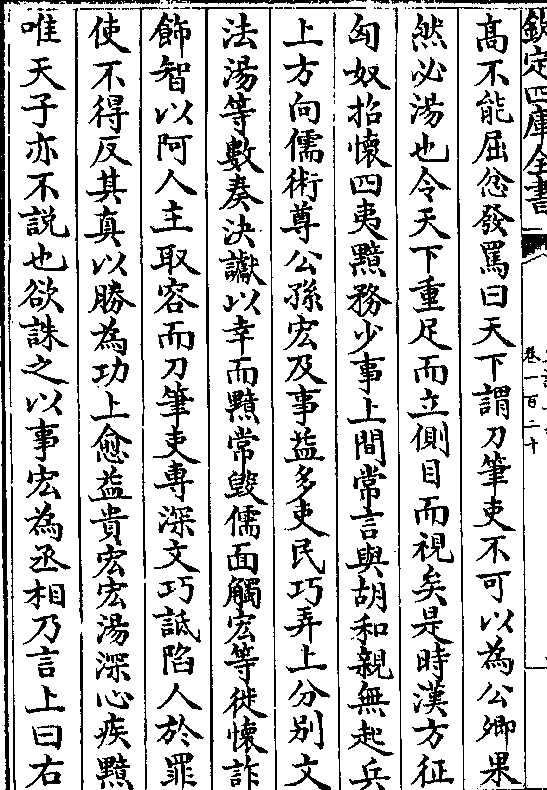 欽定四庫全書
卷一百二十
髙不能屈忿發罵曰天下謂刀筆吏不可以為公卿果
然必湯也令天下重足而立側目而視矣是時漢方征
匈奴招懷四夷黯務少事上間常言與胡和親無起兵
上方向儒術尊公孫宏及事益多吏民巧弄上分别文
法湯等數奏決讞以幸而黯常毀儒面觸宏等徒懷詐
飾智以阿人主取容而刀筆吏專深文巧詆陷人於罪
使不得反其真以勝為功上愈益貴宏宏湯深心疾黯
唯天子亦不説也欲誅之以事宏為丞相乃言上曰右